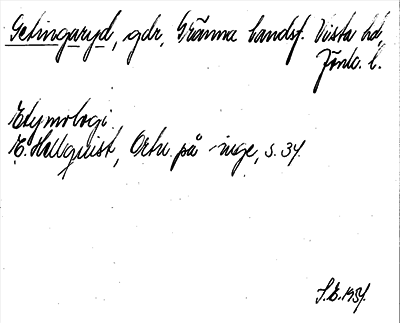 Getingaryd, gdr, Gränna landsf. Vista hd,
Jönk. l.
Etymologi.
E. Hellquist, Ortn. på -inge, s. 37.
S.E. 1937.